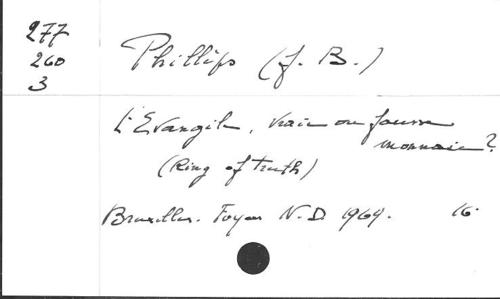 277
260
3
Phillips (J. B.)
L'Evangile, vraie ou fausse
monnaie?
(Ring of truth)
Bruxelles. Foyer N.D. 1969. 16.